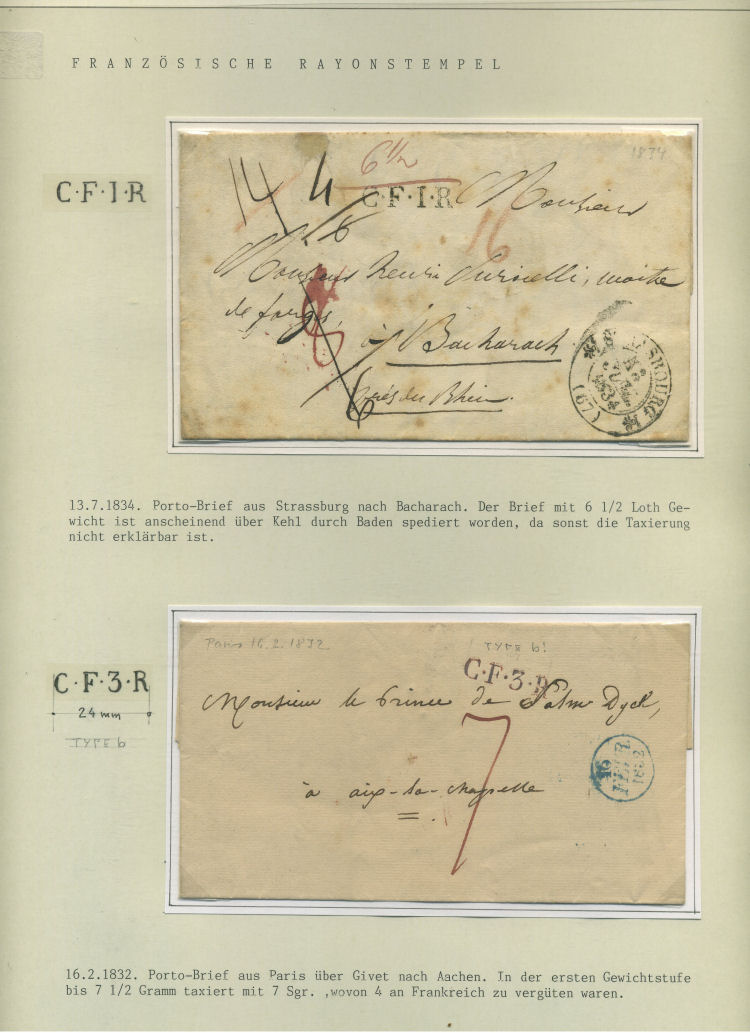 FRANZÖSISCHE RAYONSTEMPEL
C·F·1·R
6 1/2
1834
14
C·F·1·R Monsieur
16
Monsieur Henri
de forges,
à Bacharach
près du Rhin.
(67)
13.7.1834. Porto-Brief aus Strassburg nach Bacharach. Der Brief mit 6 1/2 Loth Ge-
wicht ist anscheinend über Kehl durch Baden spediert worden, da sonst die Taxierung
nicht erklärbar ist.
Paris 16.2.1832.
TYPE b!
C·F·3·R
C·F·3·R
24 mm
TYPE b
Monsieur le Prince de Salm Dyck,
7
16
FEVR
1832
à aix-la-chapelle
16.2.1832. Porto-Brief aus Paris über Givet nach Aachen. In der ersten Gewichtstufe
bis 7 1/2 Gramm taxiert mit 7 Sgr. ,wovon 4 an Frankreich zu vergüten waren.